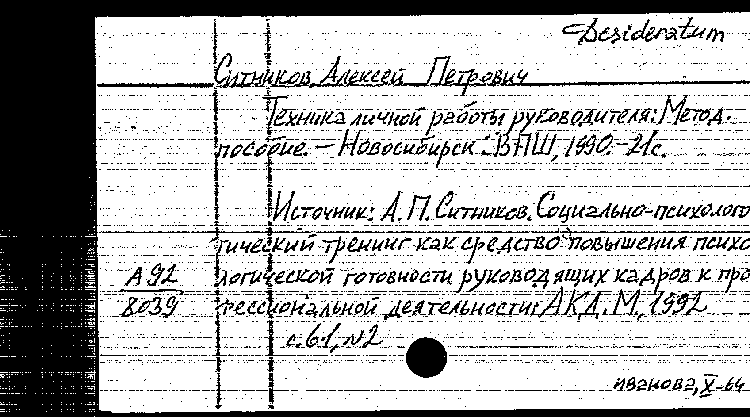 Desideratum
Ситников, Алексей Петрович
Техника личной работы руководителя: Метод.
пособие. - Новосибирск: ВПШ, 1990. - 21с.
Источник: А.П. Ситников. Социально-психолого
гический тренинг как средство повышения психо
А 92 логической готовности руководящих кадров к про
8039 фессиональной деятельности: АКД. М, 1992
с.61, №2
Иванова, X-64